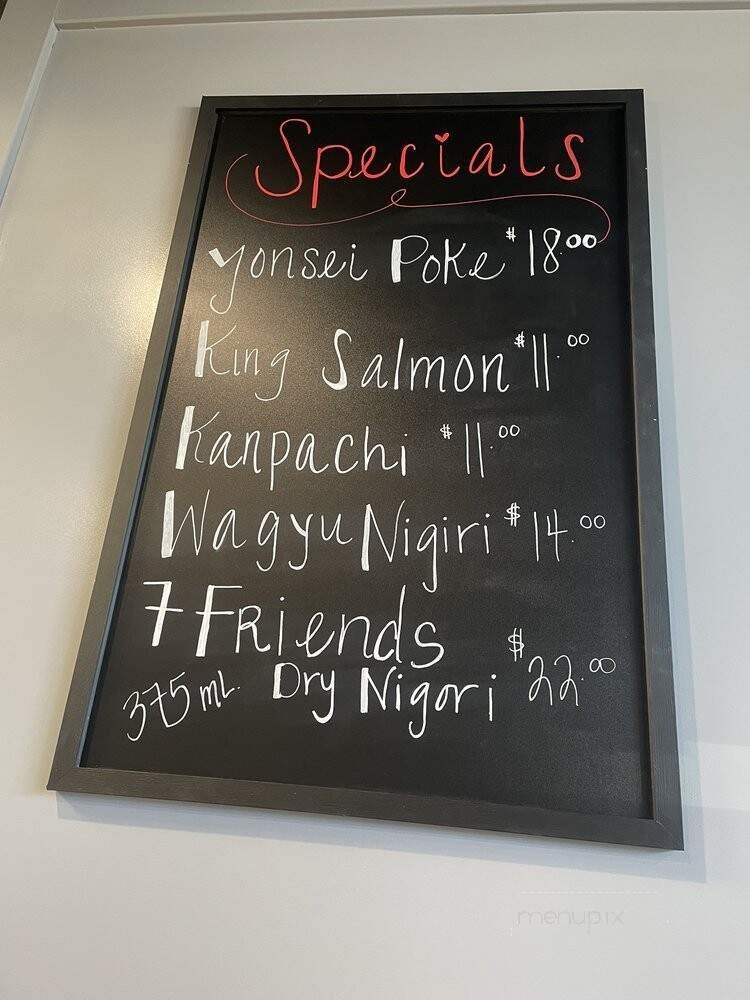 Specials
Yonsei Poke $18.00
King Salmon $11.00
Kanpachi $11.00
Wagyu Nigiri $14.00
7 Friends
375 mL. Dry Nigori $22.00
menupix